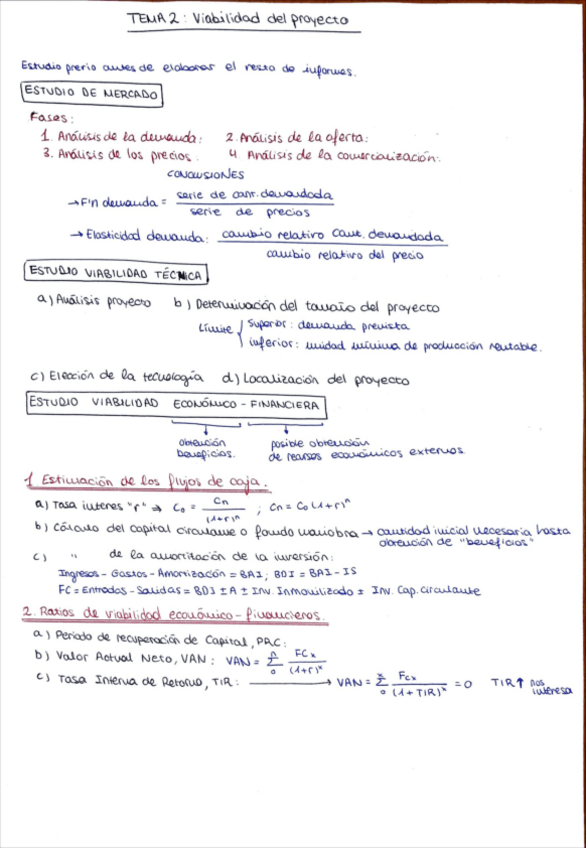 TEMA 2: Viabilidad del proyecto
Estudio previo antes de elaborar el resto de informes.
ESTUDIO DE MERCADO
Fases:
1. Análisis de la demanda: 2. Análisis de la oferta:
3. Análisis de los precios. 4. Análisis de la comercialización:
CONCLUSIONES
→ F'n demanda = serie de cant. demandada / serie de precios
→ Elasticidad demanda: cambio relativo cant. demandada / cambio relativo del precio
ESTUDIO VIABILIDAD TÉCNICA
a) Análisis proyecto b) Determinación del tamaño del proyecto
Límite / superior: demanda prevista
inferior: unidad mínima de producción rentable.
c) Elección de la tecnología d) Localización del proyecto
ESTUDIO VIABILIDAD ECONÓMICO-FINANCIERA
obtención beneficios. posible obtención de recursos económicos externos.
1 Estimación de los flujos de caja.
a) Tasa interes "r" → C₀ = Cn / (1+r)ⁿ ; Cn = C₀(1+r)ⁿ
b) Cálculo del capital circulante o fondo maniobra → cantidad inicial necesaria hasta obtención de "beneficios"
c) " de la amortización de la inversión:
Ingresos - Gastos - Amortización = BAI; BDI = BAI - IS
FC = Entradas - Salidas = BDI ± A ± Inv. Inmovilizado ± Inv. Cap. Circulante
2. Ratios de viabilidad económico-financieros.
a) Periodo de recuperación de Capital, PRC:
b) Valor Actual Neto, VAN: VAN = Σ₀ⁿ FCx / (1+r)ˣ
c) Tasa Interna de Retorno, TIR: → VAN = Σ₀ˣ FCx / (1+TIR)ˣ = 0 TIR↑ nos interesa